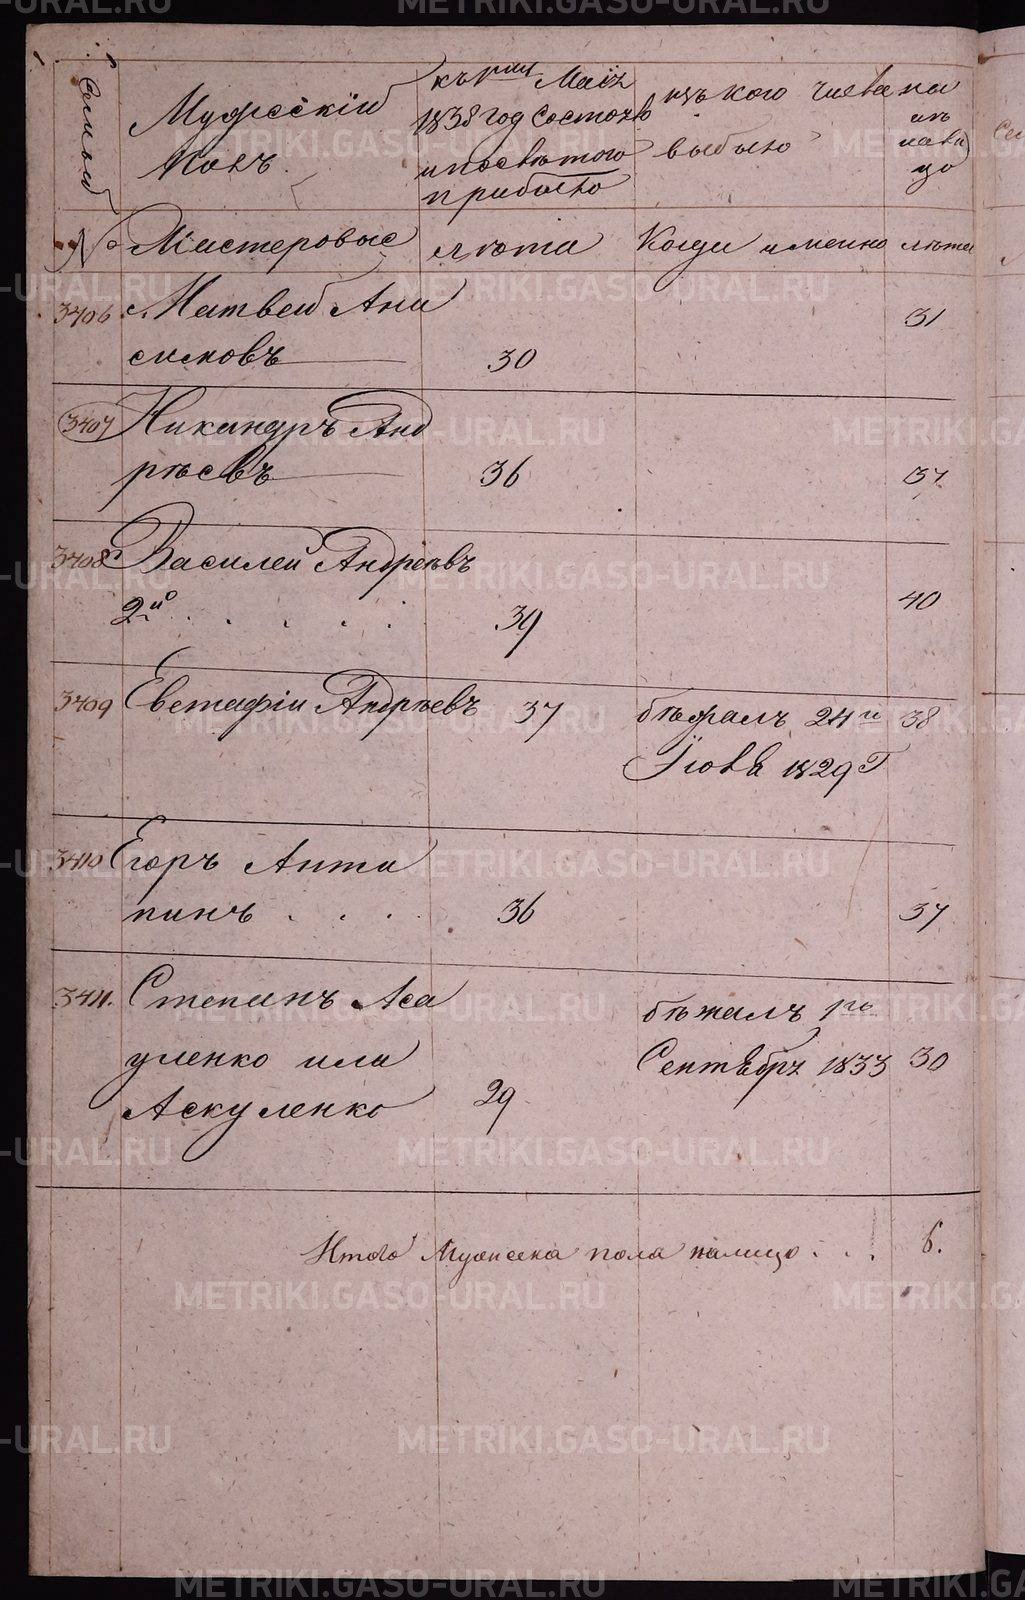 Семьи
Мужескій
Полъ.
къ 1му Маія
1838 год Состоитъ
и посвѣтого
прибыло
изъ того числа
выбыло
на
ли
цо
№
Мастеровые
лѣта
Когда именно
лѣта
3406
Матвей Ани
симовъ
30
31
3407
Никандръ Анд
рѣевъ
36
37
3408
Василей Андреевъ
2й
39
40
3409
Евстафіи Андрѣевъ
37
бѣжалъ 24го
Іюня 1829 Г
38
3410
Егоръ Анти
пинъ
36
37
3411.
Степанъ Аса
уленко или
Аскуленко
29
бѣжалъ 1го
Сентября 1833
30
Итого Мужеска пола налицо
6.
METRIKI.GASO-URAL.RU